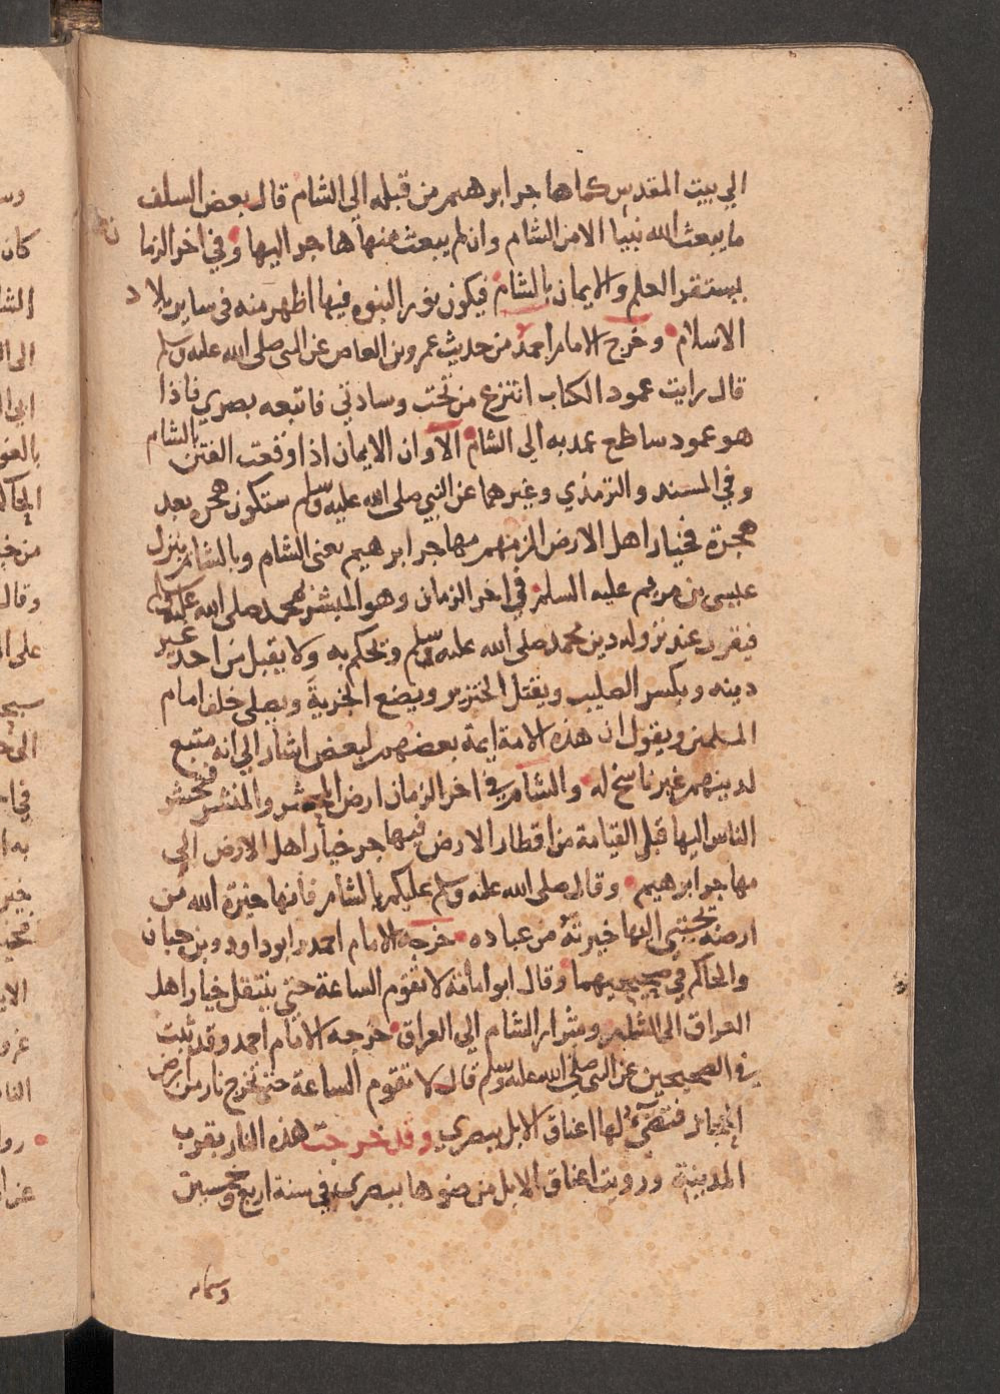 الي بيت المقدس كما هاجر ابرهيم من قبله الي الشام قال بعض السلف
ما يبعث الله نبيا الا من الشام وان لم يبعث منها هاجر اليها وفي اخر الزما
ن
يستقر العلم والايمان بالشام فيكون نور النبوه فيها اظهر منه في ساير بلاد
الاسلام وخرج الامام احمد من حديث عمرو بن العاص عن النبي صلى الله عليه وسلم
قال رايت عمود الكتاب انتزع من تحت وسادتي فاتبعه بصري فاذا
هو عمود ساطع عمد به الي الشام الا وان الايمان اذا وقعت الفتن بالشام
وفي المسند والترمذي وغيرهما عن النبي صلى الله عليه وسلم ستكون هجره بعد
هجرة فخيار اهل الارض الزمهم مهاجر ابرهيم يعني الشام وبالشام ينزل
عيسى بن مريم عليه السلم في اخر الزمان وهو المبشر بمحمد صلى الله عليه وسلم
فيقرر عند نزوله دين محمد صلى الله عليه وسلم ويحكم به ولا يقبل من احد غير
دينه ويكسر الصليب ويقتل الخنزير ويضع الجزية ويصلي خلف امام
المسلمين ويقول ان هذه الامة ايمة بعضهم لبعض اشار الي انه متبع
لدينهم غير ناسخ له والشام في اخر الزمان ارض المحشر والمنشر فيحشر
الناس اليها قبل القيامة من اقطار الارض فيهاجر خيار اهل الارض الي
مهاجر ابرهيم وقال صلى الله عليه وسلم عليكم بالشام فانها خيرة الله من
ارضه يجتبي اليها خيرته من عباده خرجه الامام احمد وابو داود وبن حبان
والحاكم في صحيحيهما وقال ابو امامة لا تقوم الساعة حتي ينتقل خيار اهل
العراق الى الشام وشرار الشام الي العراق خرجه الامام احمد وقد ثبت
في الصحيحين عن النبي صلى الله عليه وسلم قال لا تقوم الساعة حتى تخرج نار من ارض
الحجاز فتضيء لها اعناق الابل ببصري وقد خرجت هذه النار بقرب
المدينة ورويت اعناق الابل من ضوها ببصرى في سنة اربع وخمسين
وستمايه